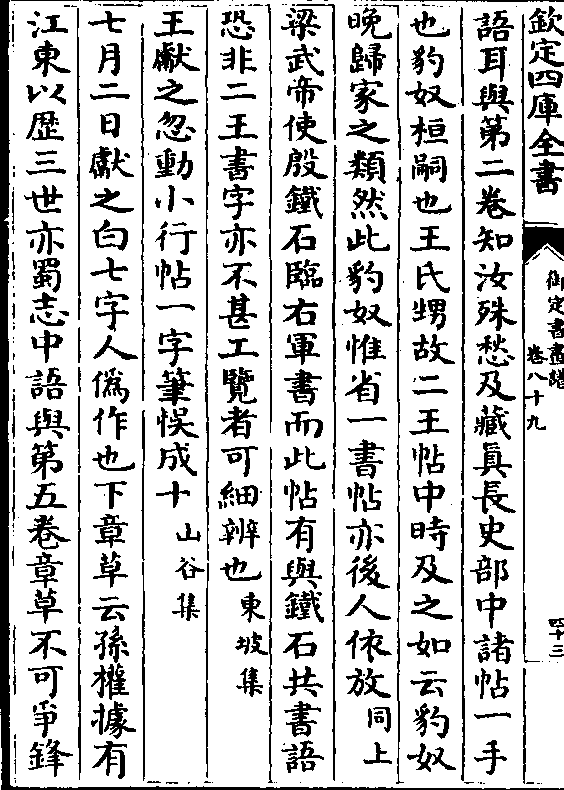 欽定四庫全書
御定書畫譜
卷八十九
四十三
語耳與第二卷知汝殊愁及藏眞長史部中諸帖一手
也豹奴桓嗣也王氏甥故二王帖中時及之如云豹奴
晚歸家之類然此豹奴惟省一書帖亦後人依放同上
梁武帝使殷鐵石臨右軍書而此帖有與鐵石共書語
恐非二王書字亦不甚工覽者可細辨也東坡集
王獻之忽動小行帖一字筆悮成十山谷集
七月二日獻之白七字人僞作也下章草云孫權據有
江東以歷三世亦蜀志中語與第五卷章草不可爭鋒